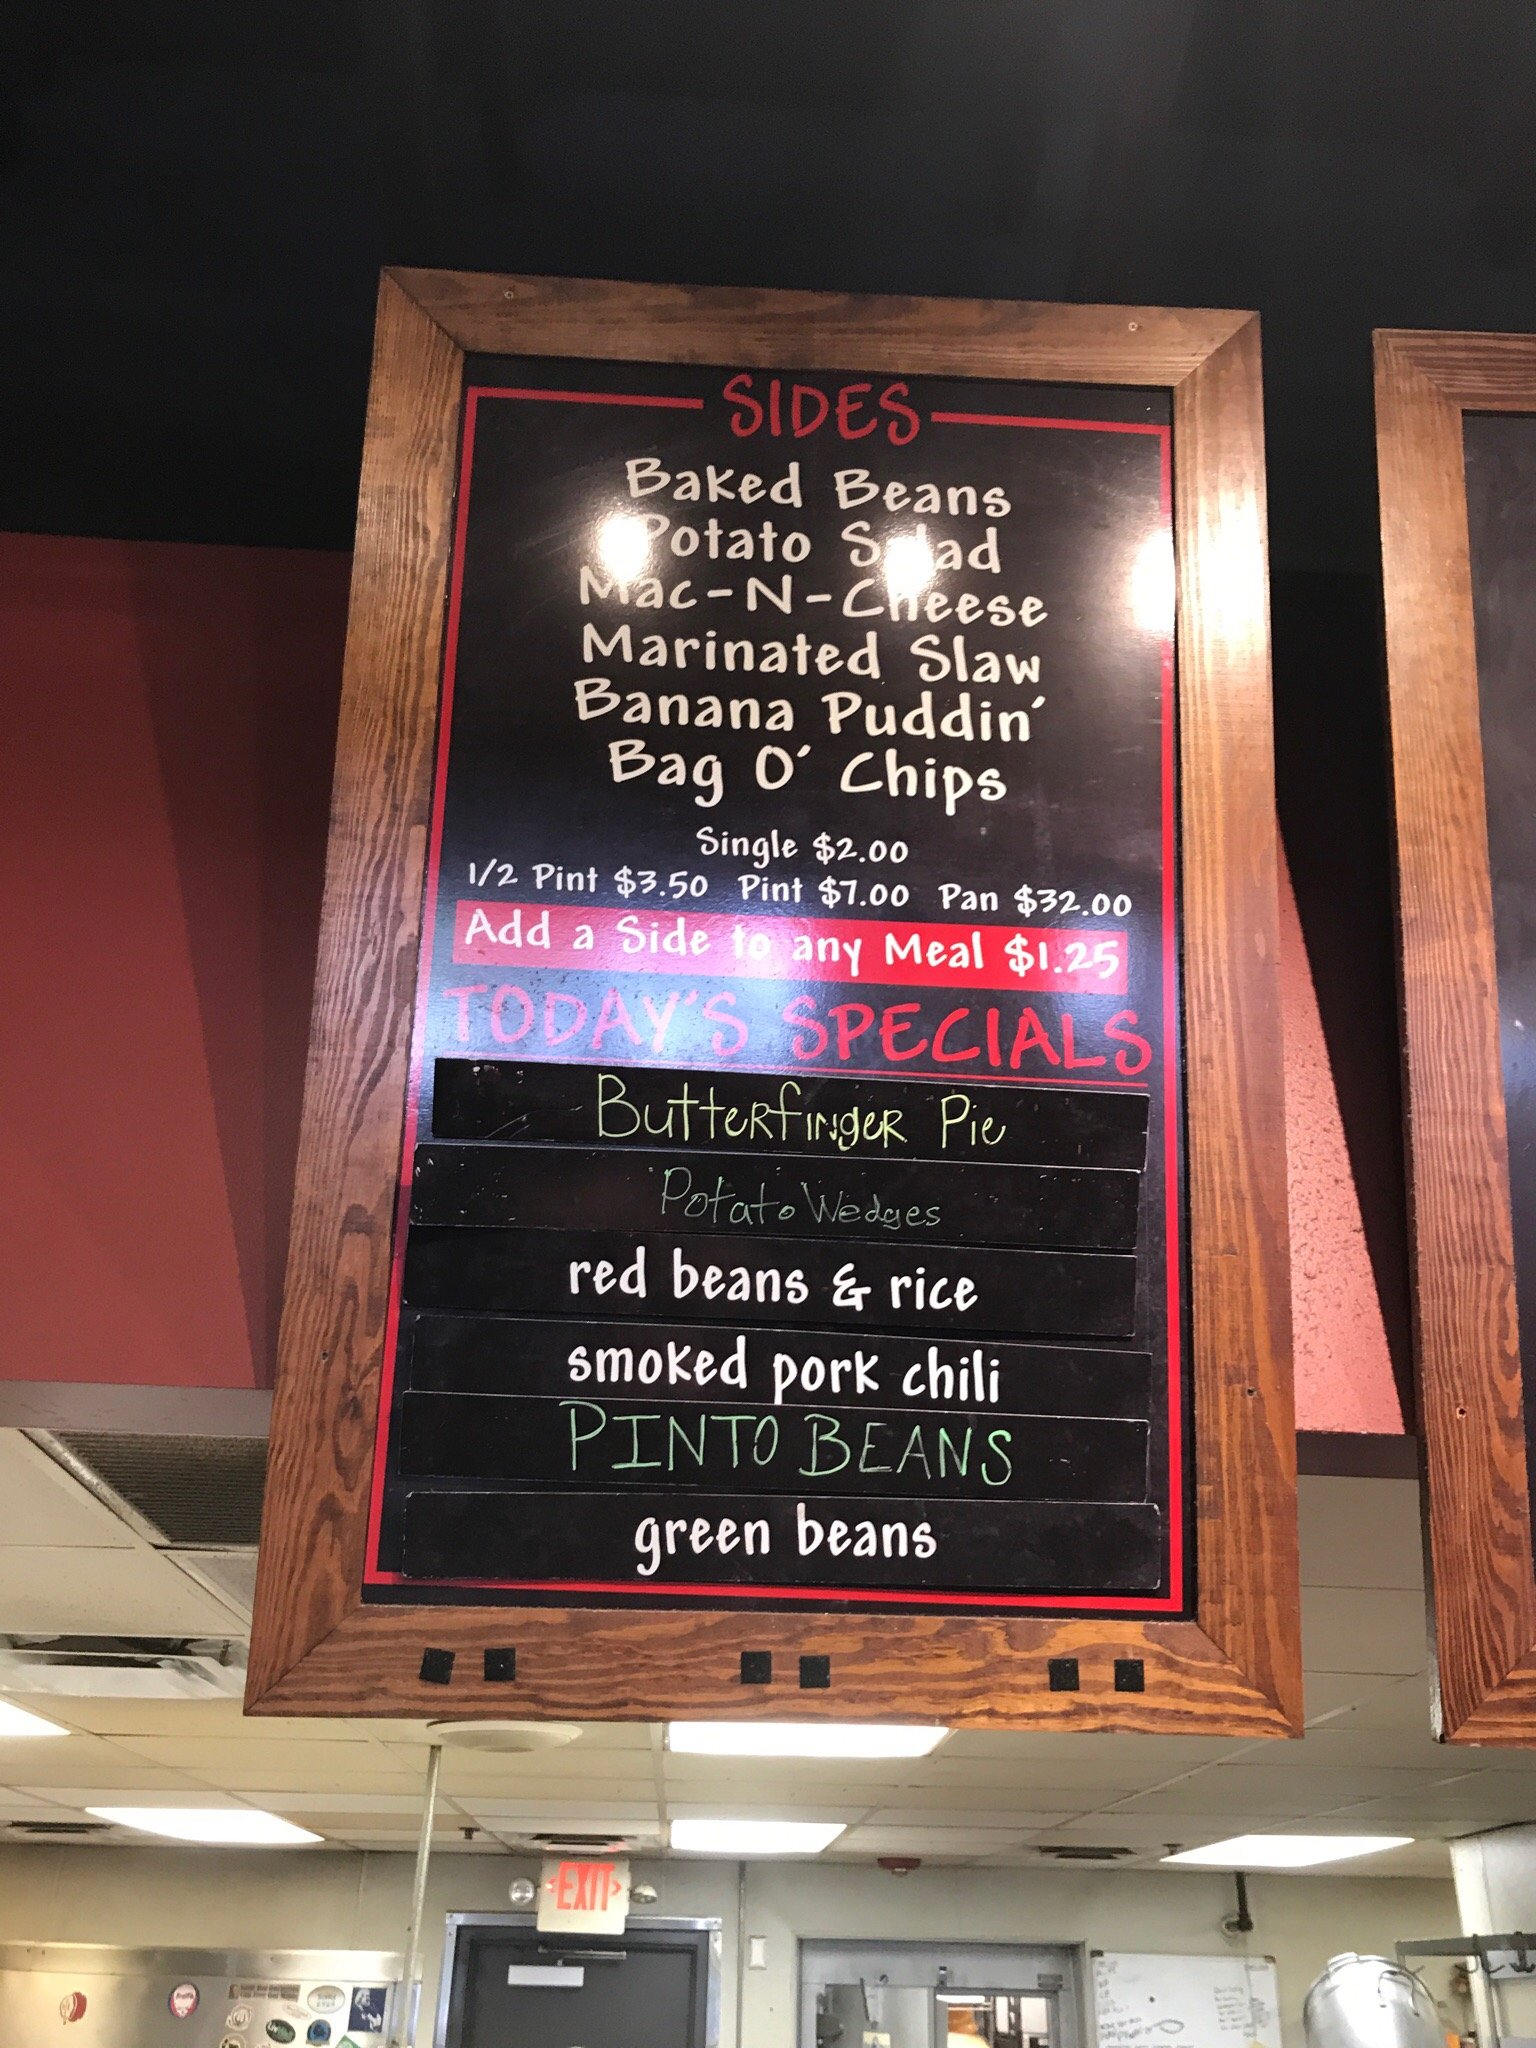 SIDES
Baked Beans
Potato Salad
Mac-N-Cheese
Marinated Slaw
Banana Puddin'
Bag O' Chips
Single $2.00
1/2 Pint $3.50 Pint $7.00 Pan $32.00
Add a Side to any Meal $1.25
TODAY'S SPECIALS
Butterfinger Pie
Potato Wedges
red beans & rice
smoked pork chili
PINTO BEANS
green beans
EXIT